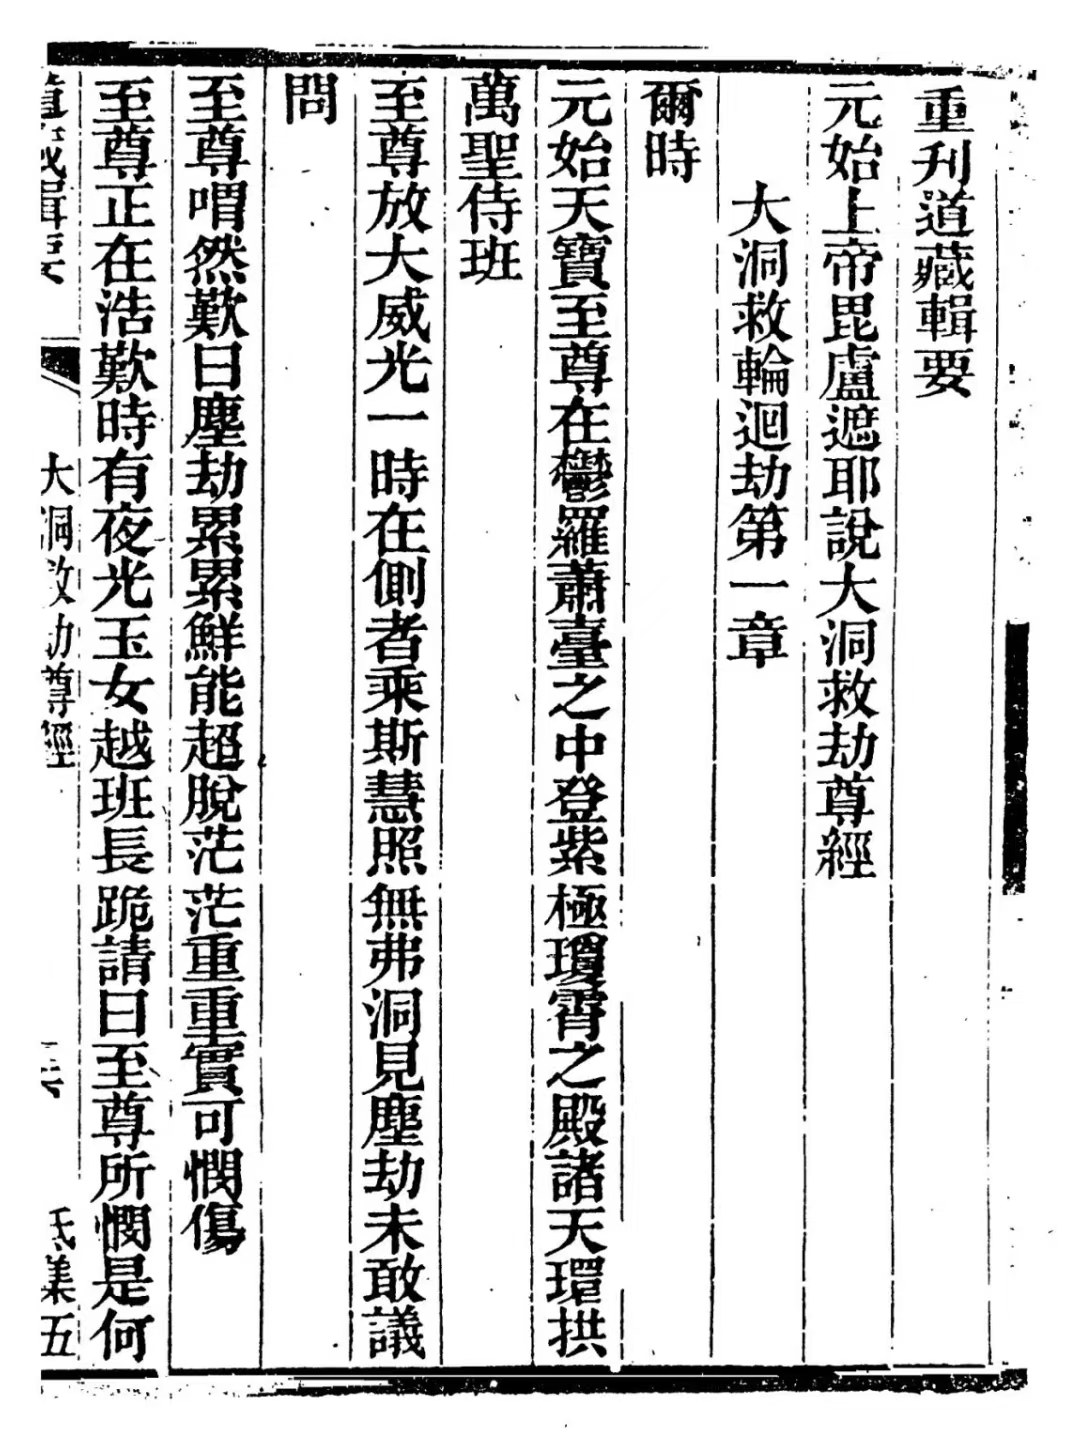 重刊道藏輯要
元始上帝毘盧遮耶說大洞救劫尊經
大洞救輪迴劫第一章
爾時
元始天寶至尊在鬱羅蕭臺之中登紫極瓊霄之殿諸天環拱
萬聖侍班
至尊放大威光一時在側者乘斯慧照無弗洞見塵劫未敢議
問
至尊喟然歎曰塵劫累累鮮能超脫茫茫重重實可憫傷
至尊正在浩歎時有夜光玉女越班長跪請曰至尊所憫是何
道藏輯要 大洞救劫尊經 氐集五